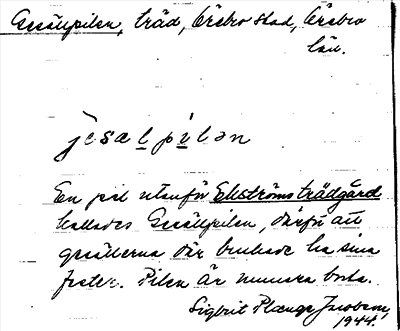 Gesällpilen, träd, Örebro stad, Örebro
län.
jesælpilən
En pil utanför Ekströms trädgård
kallades Gesällpilen, därför att
gesällerna där brukade ha sina
fester. Pilen är numera borta.
Sigbrit Plænge Jacobson,
1944.